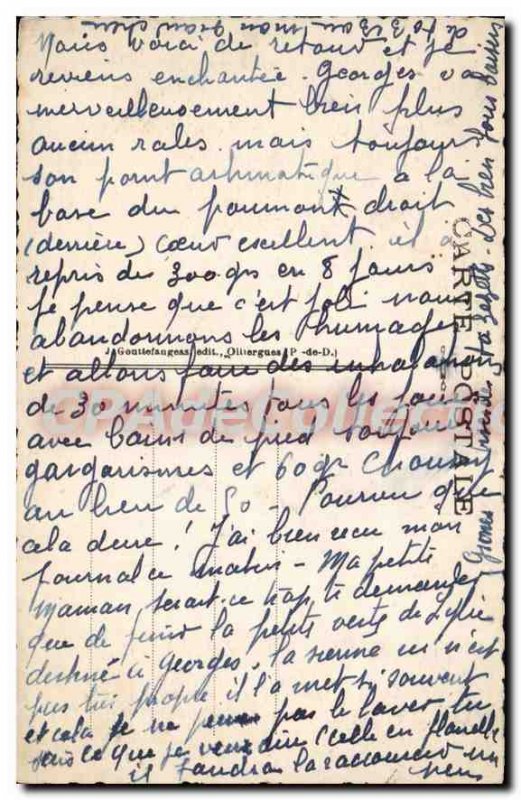 Nous voici de retour et je
reviens enchantée. Georges va
merveilleusement bien plus
aucun rales mais toujours
son point asthmatique a la
base du poumont droit
(derrière) Cœur excellent, et a
repris de 300 grs en 8 jours
je pense que c'est joli nous
abandonnons les humages
J. Gouttefangeas, édit., Olliergues (P.-de-D.)
et allons faire des inhalations
de 30 minutes tous les jours
avec bains de pied toujours
gargarismes et 60 gr Choussy
au lieu de 50 - Pourvu que
cela dure ! J'ai bien reçu mon
journal ce matin - Ma petite
maman, serait-ce trop te demander
que de finir la petite veste de
destiné à Georges, la sienne n'est
pas très propre il l'a met si souvent
et cela je ne peux pas le laver tu
sais ce que je veux dire (celle en flanelle
il faudra la raccourcir un
peu
CARTE POSTALE
bien bons baisers
CPA de Collection